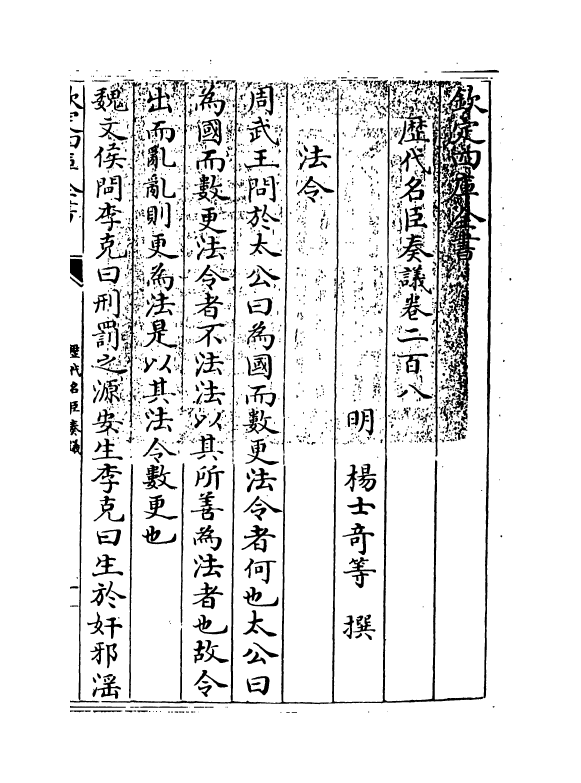 欽定四庫全書
歴代名臣奏議卷二百八
明 楊士奇等 撰
法令
周武王問於太公曰為國而數更法令者何也太公曰
為國而數更法令者不法法以其所善為法者也故令
出而亂亂則更為法是以其法令數更也
魏文侯問李克曰刑罰之源安生李克曰生於奸邪滛
欽定四庫全書
歴代名臣奏議
一